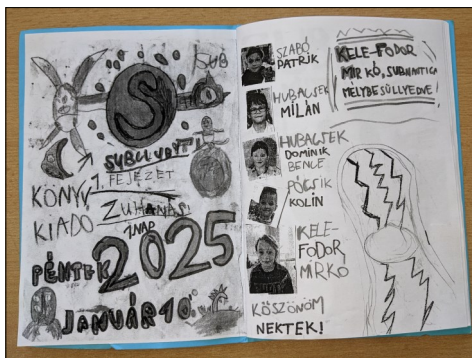 SUB
S
1. FEJEZET
KÖNYV
KIADO
ZUHANÁS!
1.NAP
PÉNTEK 2025
JANUÁR 10.
SZABÓ
PATRIK
HUBACSEK
MILÁN
HUBACSEK
DOMINIK
BENCE
PÓCSIK
KOLIN
KELE-
FODOR
MIRKÓ
KÖSZÖNÖM
NEKTEK!
KELE-FODOR
MIRKÓ, SUBNAUTICA
MÉLYBESÜLLYEDVE